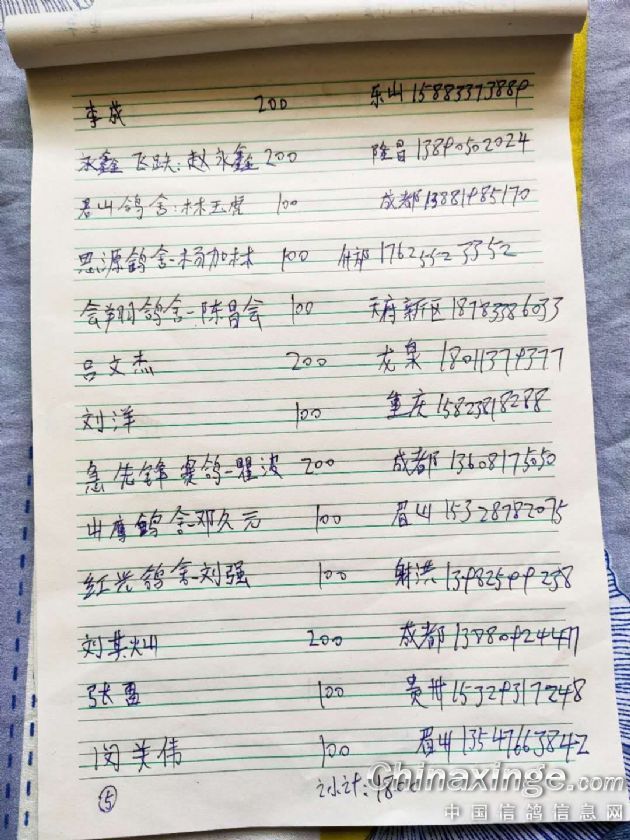 李成 200 乐山 15883373889
永鑫飞跃:赵永鑫 200 隆昌 13890502024
君山鸽舍:林玉虎 100 成都 13881985170
思源鸽舍-杨加林 100 17625523352
会羽鸽舍-陈昌会 100 天府新区 18783386033
吕文杰 200 龙泉 18011379377
刘洋 100 重庆 15823818288
急先锋赛鸽-瞿波 200 成都 13608175050
山鹰鸽舍-邓久元 100 眉山 15328782075
红光鸽舍-刘强 100 射洪 13982599238
刘英灿 200 成都 13880924411
张勇 100 贵州 15329317248
闵关伟 100 眉山 13547663842
⑤ 小计:1800
Chinaxinge.com
中国信鸽信息网